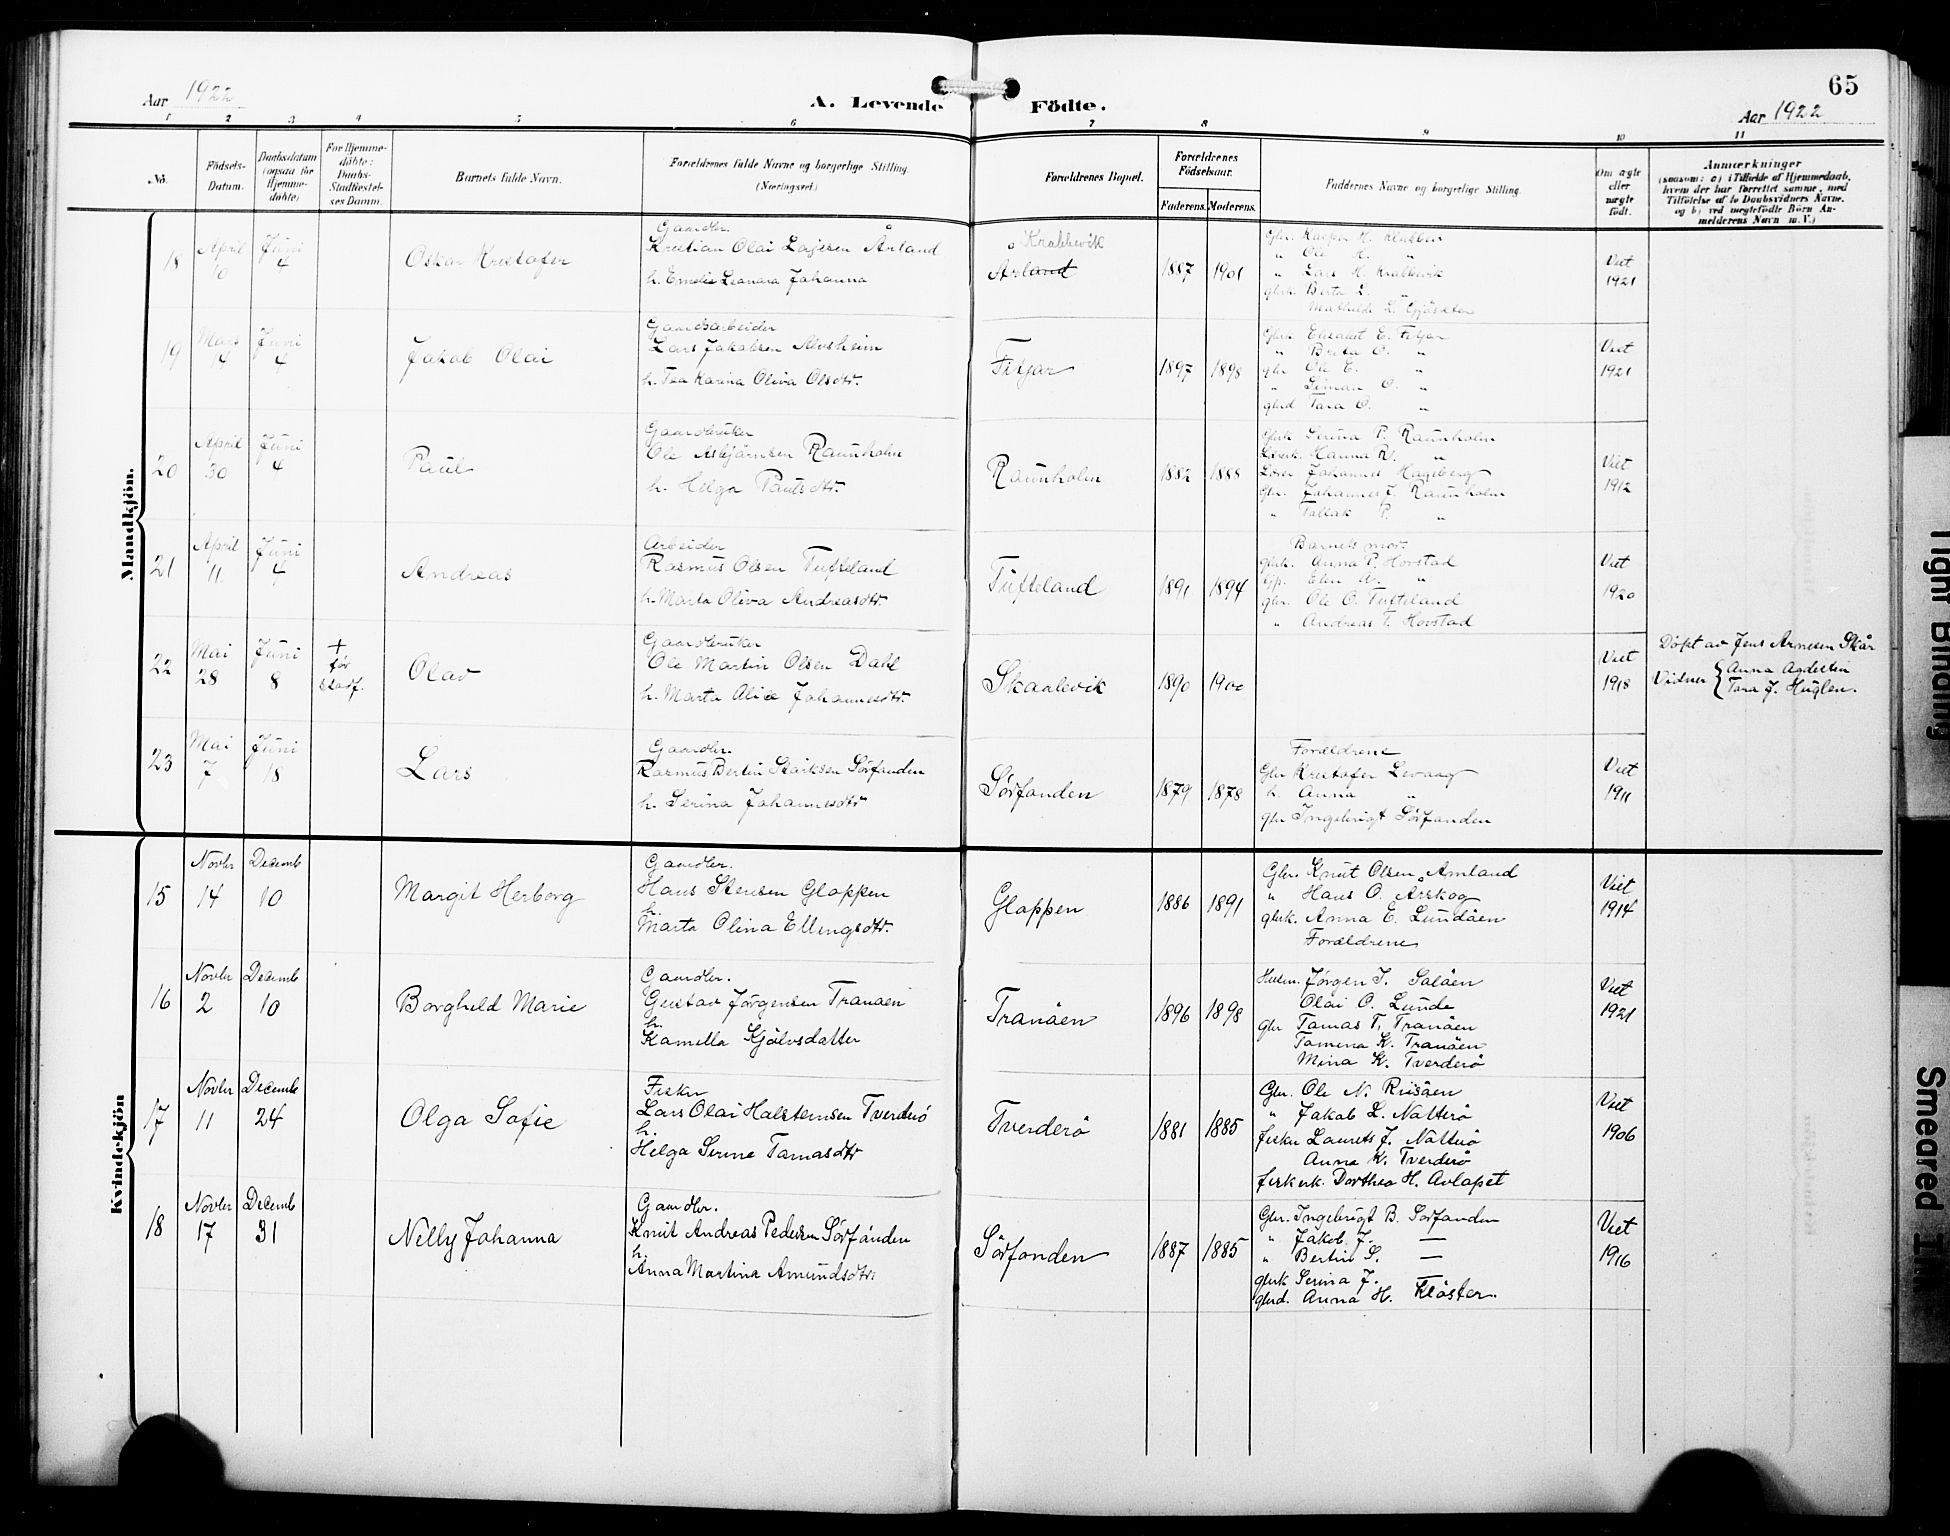 65
Aar 1922
A. Levende Födte.
Aar 1922
1 2 3 4 5 6 7 8 9 10 11
No.
Födsels-Datum.
Daabsdatum (ogsaa for Hjemmedöbte)
For Hjemmedöbte: Daabs-Stadfæstelses Datum.
Barnets fulde Navn.
Forældrenes fulde Navne og borgerlige Stilling. (Næringsvei.)
Forældrenes Bopæl.
Forældrenes Födselsaar.
Faderens. Moderens.
Faddernes Navne og borgerlige Stilling.
Om ægte eller uægte födt.
Anmærkninger
(saasom: a) i Tilfælde af Hjemmedaab,
hvem der har forrettet samme, med
Tilföielse af to Daabsvidners Navne.
og b) ved uægtefödte Börn Anmelderens Navn m. V.)
Mandkjön.
18 April 10 Juni 4
Oskar Kristofer
Gaardbr.
Kristian Olai Lajesen Årland
h. Emelie Leanara Johanna
Krabbevik
Årland
1887 1901
Gbr. Kasper H. Klubben
" Ole H. "
" Lars H. Krabbevik
gbrk. Berta L. "
Mathilde L. Gjøsæter
Viet 1921
19 Mars 14 Juni 4
Jakob Olai
Gaardsarbeider
Lars Jakobsen Alvsheim
h. Tea Karina Oliva Olsdtr.
Fitjar
1897 1898
Gbrk. Elisabet E. Fitjar
" Brita O. "
gbr. Ole E. "
" Simon O. "
gbrd. Tara O. "
Viet 1921
20 April 30 Juni 4
Paul
Gaardbruker
Ole Asbjørnsen Raunholm
h. Helga Paulsdtr.
Raunholm
1882 1888
Gbrk. Serina P. Raunholm
Hanna R. "
Johannes Hageberg
Gbr. Johannes J. Raunholm
" Tallak P. "
Viet 1912
21 April 11 Juni 4
Andreas
Arbeider
Rasmus Olsen Tufteland
h. Marta Oliva Andreasdtr.
Tufteland
1891 1894
Barnets mor.
gbrk. Anna P. Hovstad
Elen A. "
gbr. Ole O. Tufteland
" Andreas T. Hovstad
Viet 1920
22 Mai 28 Juni 8
+ før stadf.
Olav
Gaardbruker
Ole Martin Olsen Dahl
h. Marta Alice Johannesdtr.
Skaalevik
1890 1900
Viet 1918
Døpt av Jens Arnesen Skår
Vidner { Anna Agdestin
Tara J. Huglen.
23 Mai 7 Juni 18
Lars
Gaardbr.
Rasmus Bertin Størksen Sørfonden
h. Serina Johannesdtr
Sørfonden
1879 1878
Forældrene
Gbr Kristofer Levaag
h. Anna "
gbr Ingebrigt Sørfonden
Viet 1911
Kvindekjön
15 Novbr 14 Decemb 10
Margit Herborg
Gaardbr.
Hans Stensen Gloppen
h.
Marta Olina Ellingsdtr.
Gloppen
1886 1891
Gbr. Knut Olsen Amland
" Hans O. Årskog
gbrk. Anna E. Lundøen
Forældrene
Viet 1914
16 Novbr 2 Decemb 10
Borghild Marie
Gaardbr.
Gustav Jørgensen Tranøen
h.
Kamilla Kjølvsdatter
Tranøen
1896 1898
Husm. Jørgen I. Saløen
Olai O. Lunde
gbr Tomas T. Tranøen
Tomina K. Tranøen
Mina K. Tverderø
Viet 1921
17 Novbr 11 Decemb 24
Olga Sofie
Fisker
Lars Olai Halsteinsen Tverderø
h.
Helga Serine Tomasdtr
Tverderø
1881 1885
Gbr. Ole N. Risøen
" Jakob L. Natterø
fisker Laurets J. Natterø
Anna K. Tverderø
fiskerk. Dorthea H. Avløpet
Viet 1906
18 Novbr 17 Decemb 31
Nelly Johanna
Gaardbr.
Knut Andreas Pedersen Sørfonden
h.
Anna Martina Amundsdtr.
Sørfonden
1887 1885
Gbr. Ingebrigt B. Sørfonden
" Jakob J. —
" Bertin S. —
gbrk Serina J.
gbrd. Anna H. Kloster.
Viet 1916
Tight Binding
Smeared Ink